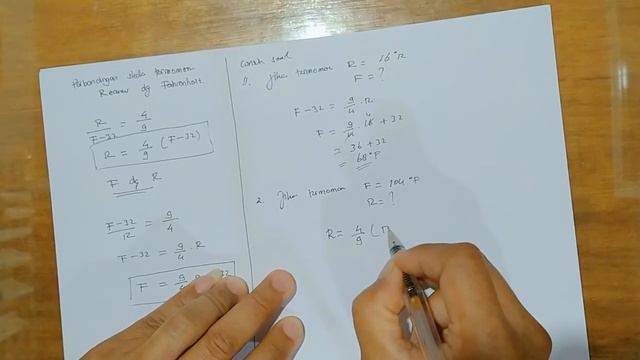 Perbandingan skala termometer
Reamur dg Fahrenheit.
R/F-32 = 4/9
R = 4/9 (F-32)
F dg R
F-32/R = 9/4
F-32 = 9/4 . R
F = 9/4 R + 32
Contoh soal
1. Jika termometer R = 16°R
F = ?
F-32 = 9/4 . R
F = 9/4 . 16 4 + 32
= 36 + 32
= 68°F
2. Jika termometer F = 104°F
R = ?
R = 4/9 (